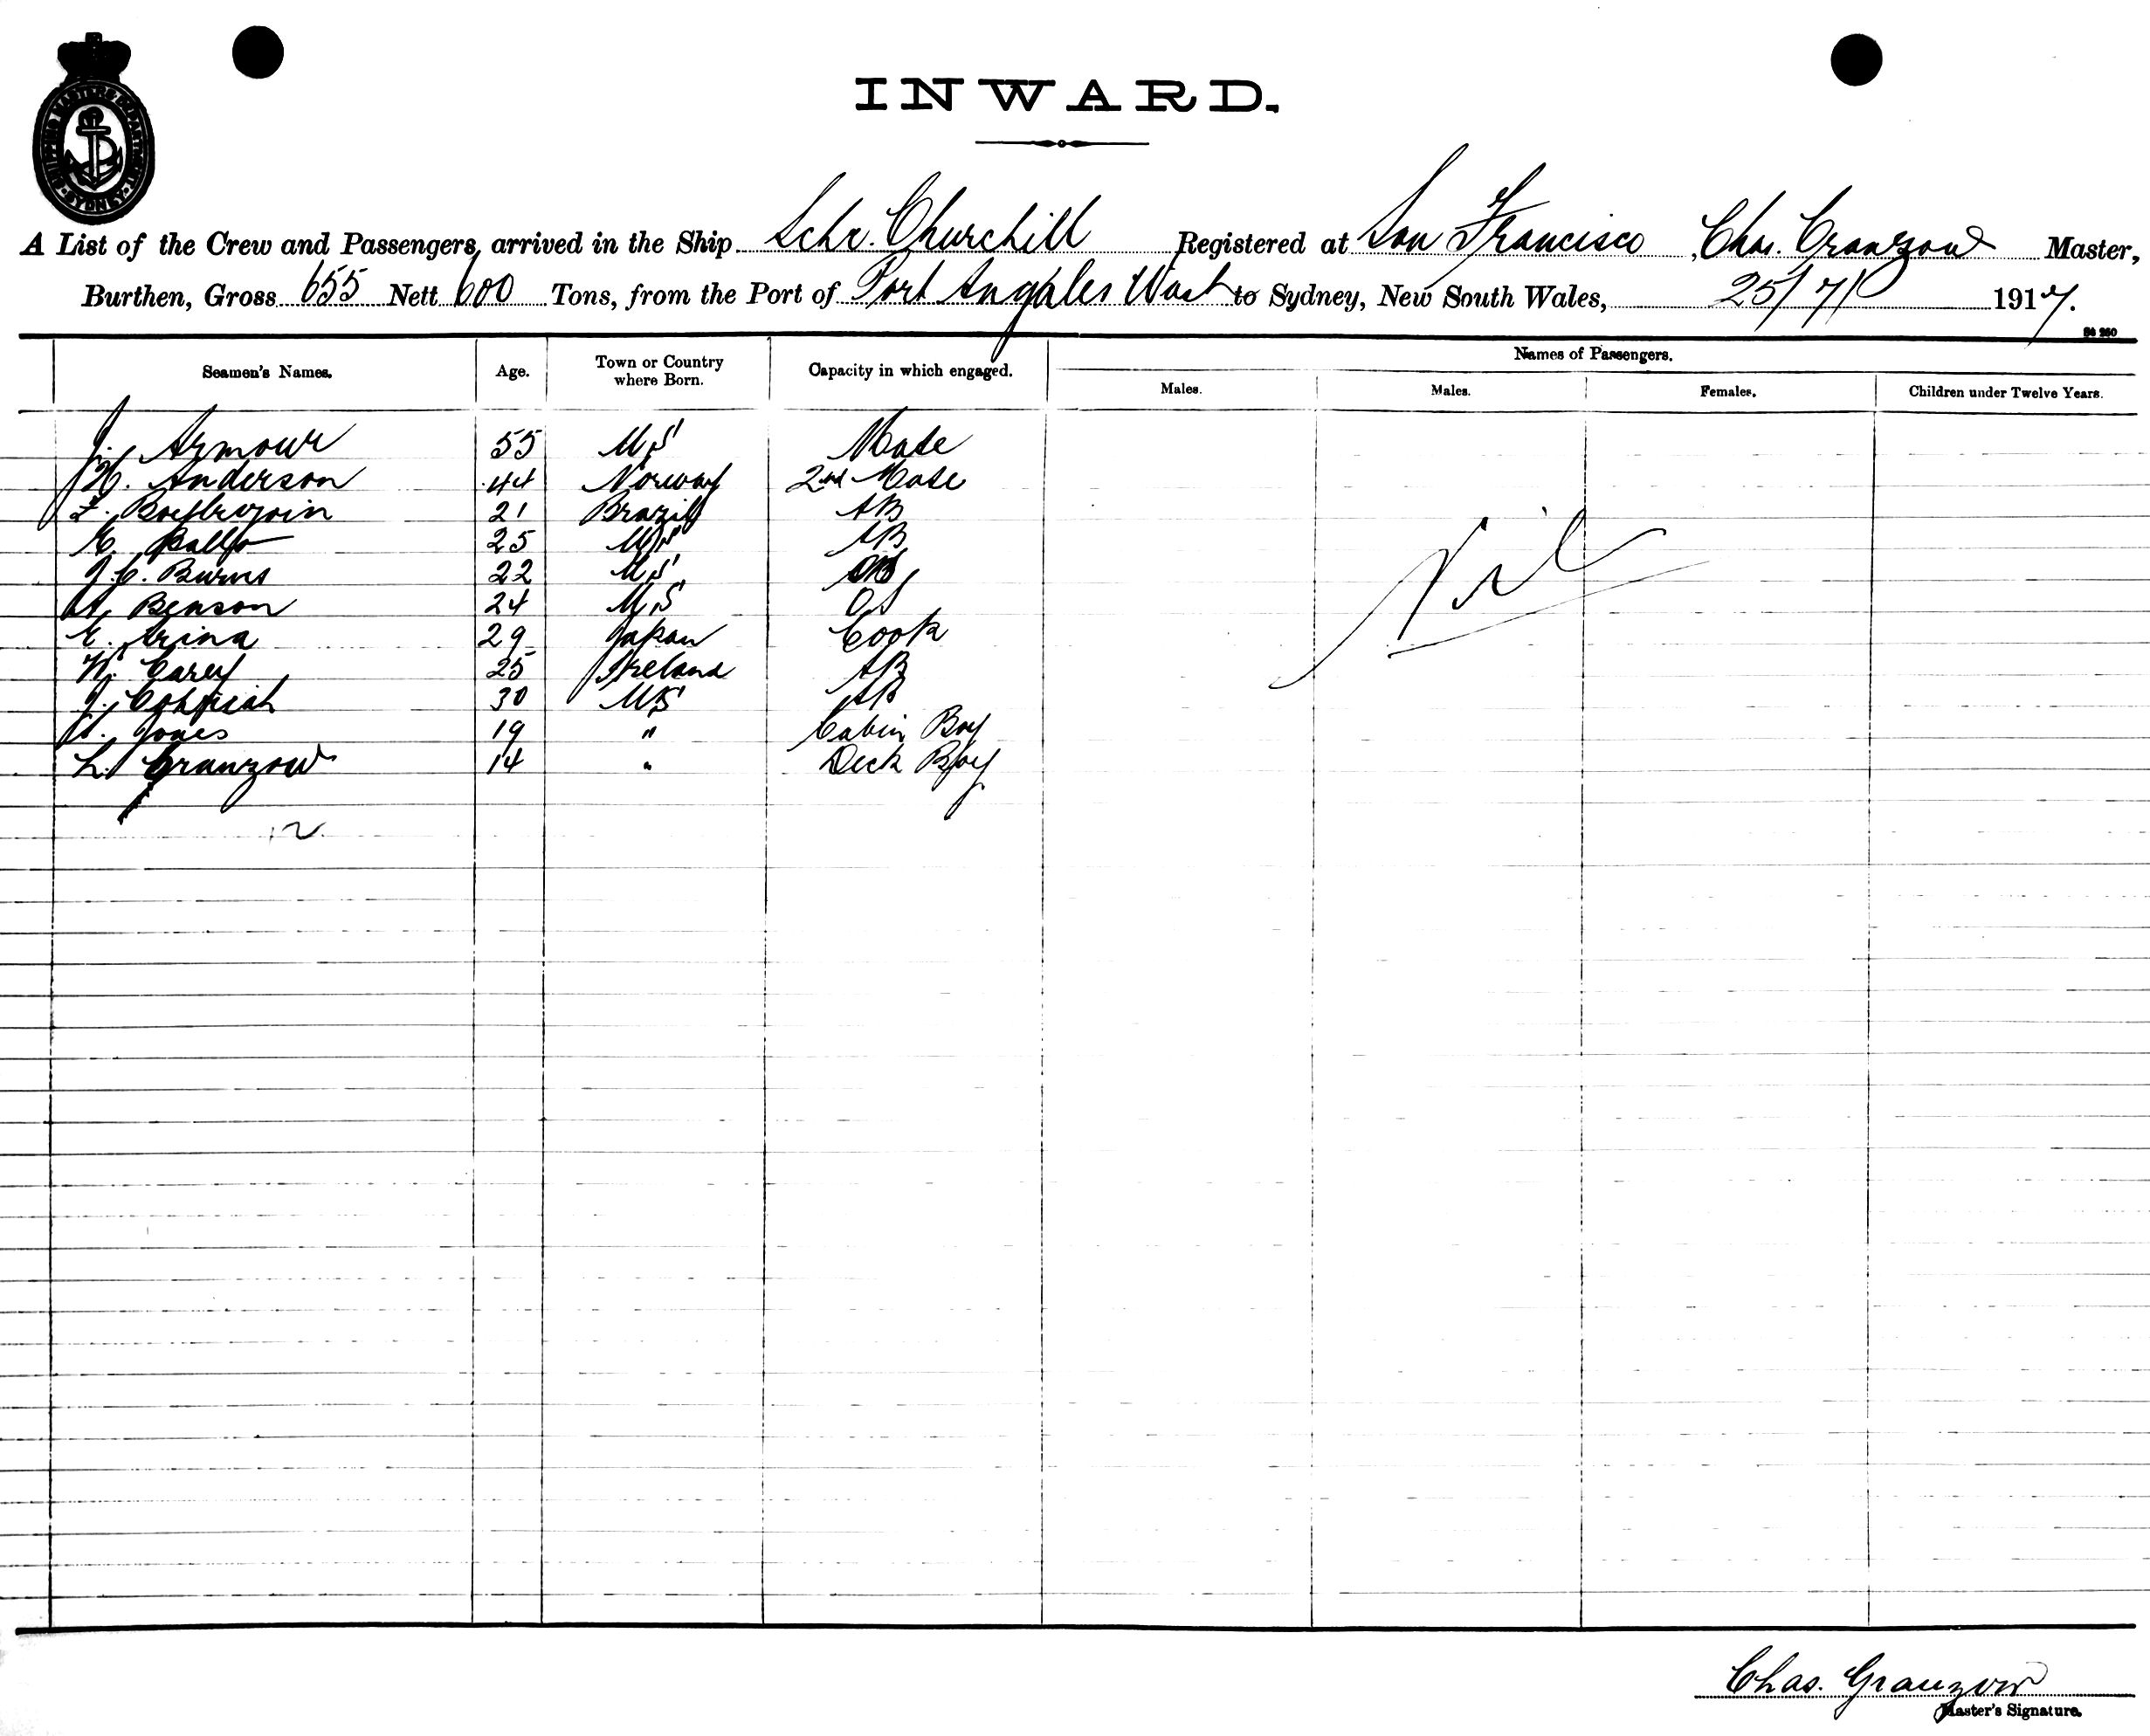 SHIPPING MASTERS DEPARTMENT SYDNEY
INWARD.
A List of the Crew and Passengers arrived in the Ship Schr. Churchill Registered at San Francisco, Chas. Granzow Master,
Burthen, Gross 655 Nett 600 Tons, from the Port of Port Angeles Wash to Sydney, New South Wales, 25/7/ 1917.
Seamen's Names. Age. Town or Country where Born. Capacity in which engaged. Names of Passengers.
Males. Males. Females. Children under Twelve Years.
J. Armour 55 US Mate
H. Anderson 44 Norway 2nd Mate
21 Brazil AB
E. 25 US AB
J. C. Burns 22 US
A. Benson 24 US OS
E. Arina 29 Japan Cook
W. Carey 25 Ireland AB
J. 30 US AB
A. Jones 19 " Cabin Boy
L. Granzow 14 " Deck Boy
Nil
12
Chas. Granzow
Master's Signature.